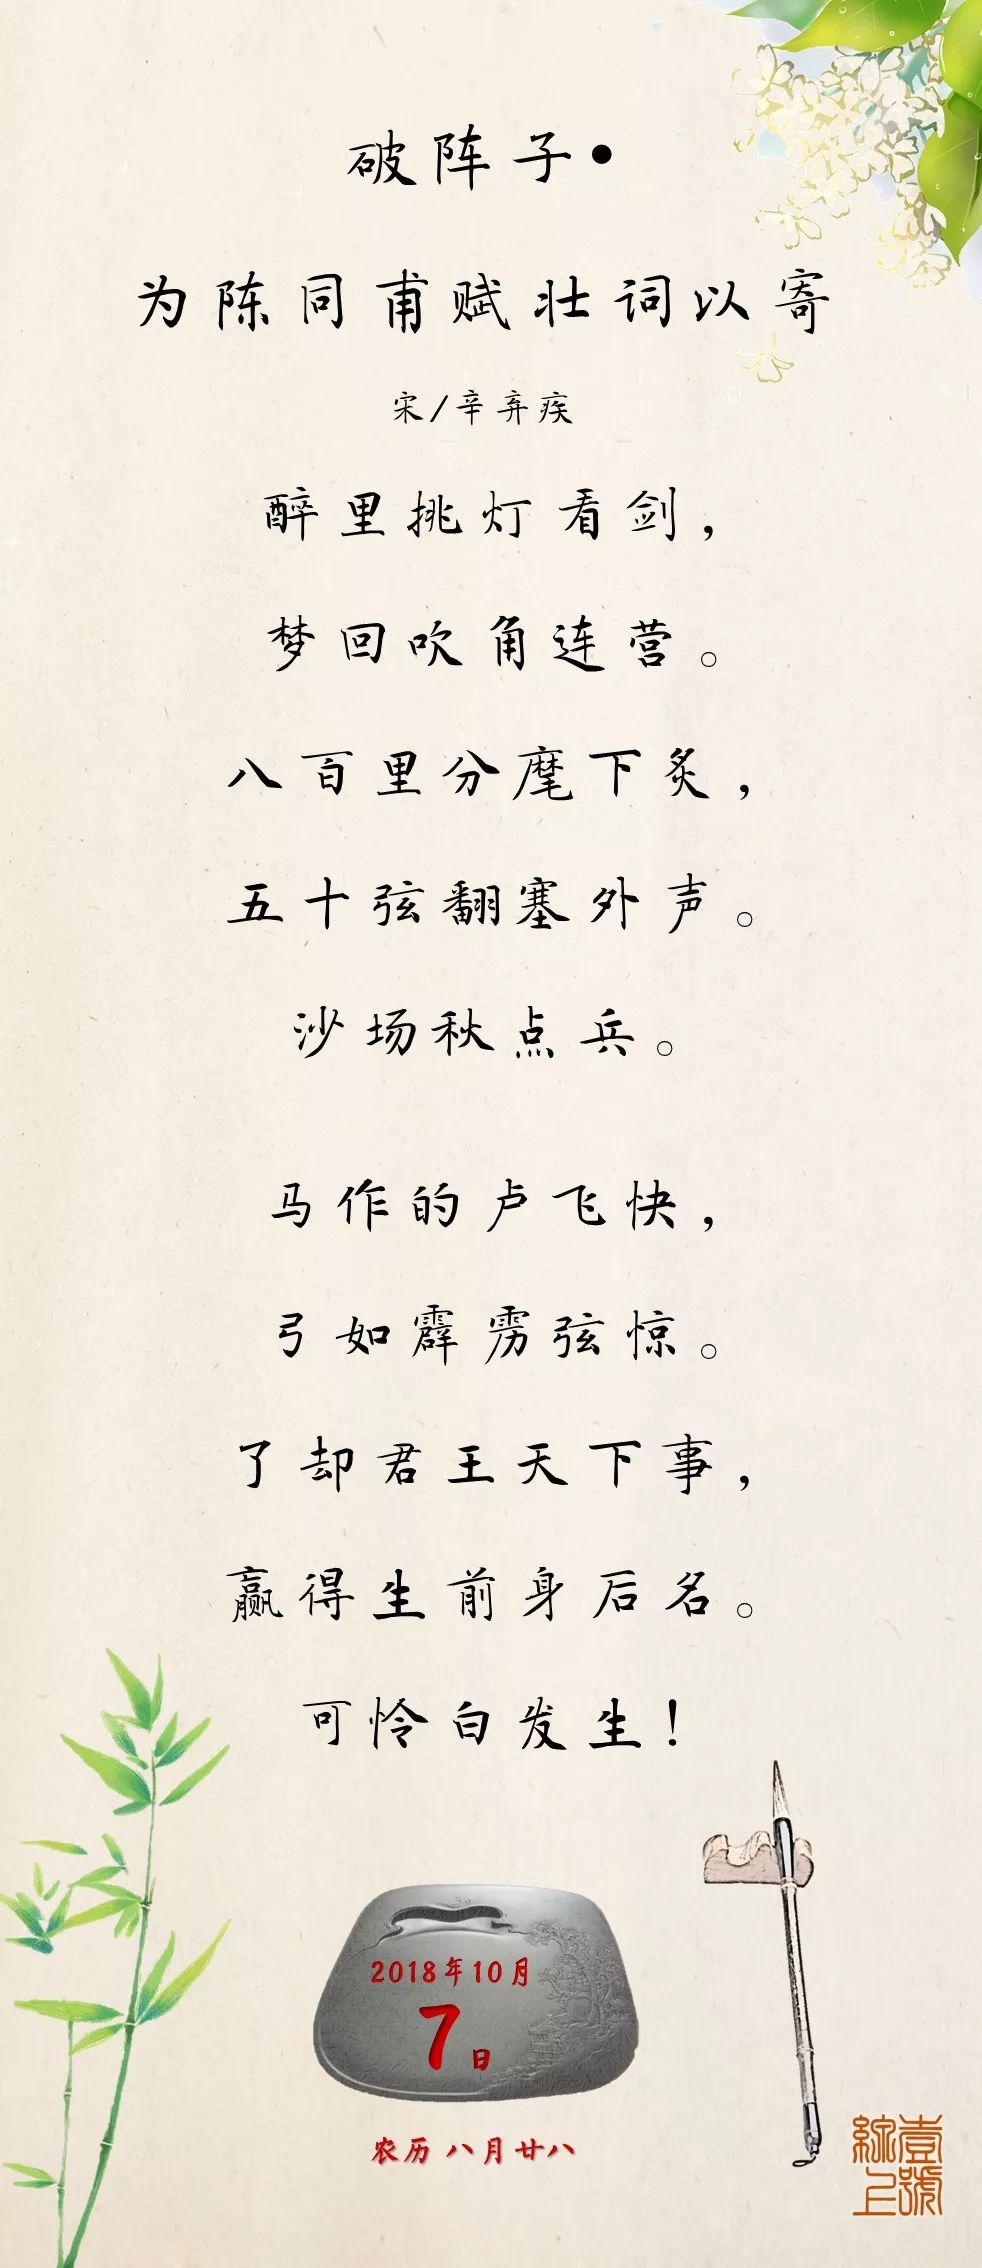 破阵子•
为陈同甫赋壮词以寄
宋/辛弃疾
醉里挑灯看剑，
梦回吹角连营。
八百里分麾下炙，
五十弦翻塞外声。
沙场秋点兵。
马作的卢飞快，
弓如霹雳弦惊。
了却君王天下事，
赢得生前身后名。
可怜白发生！
2018年10月
7日
农历 八月廿八